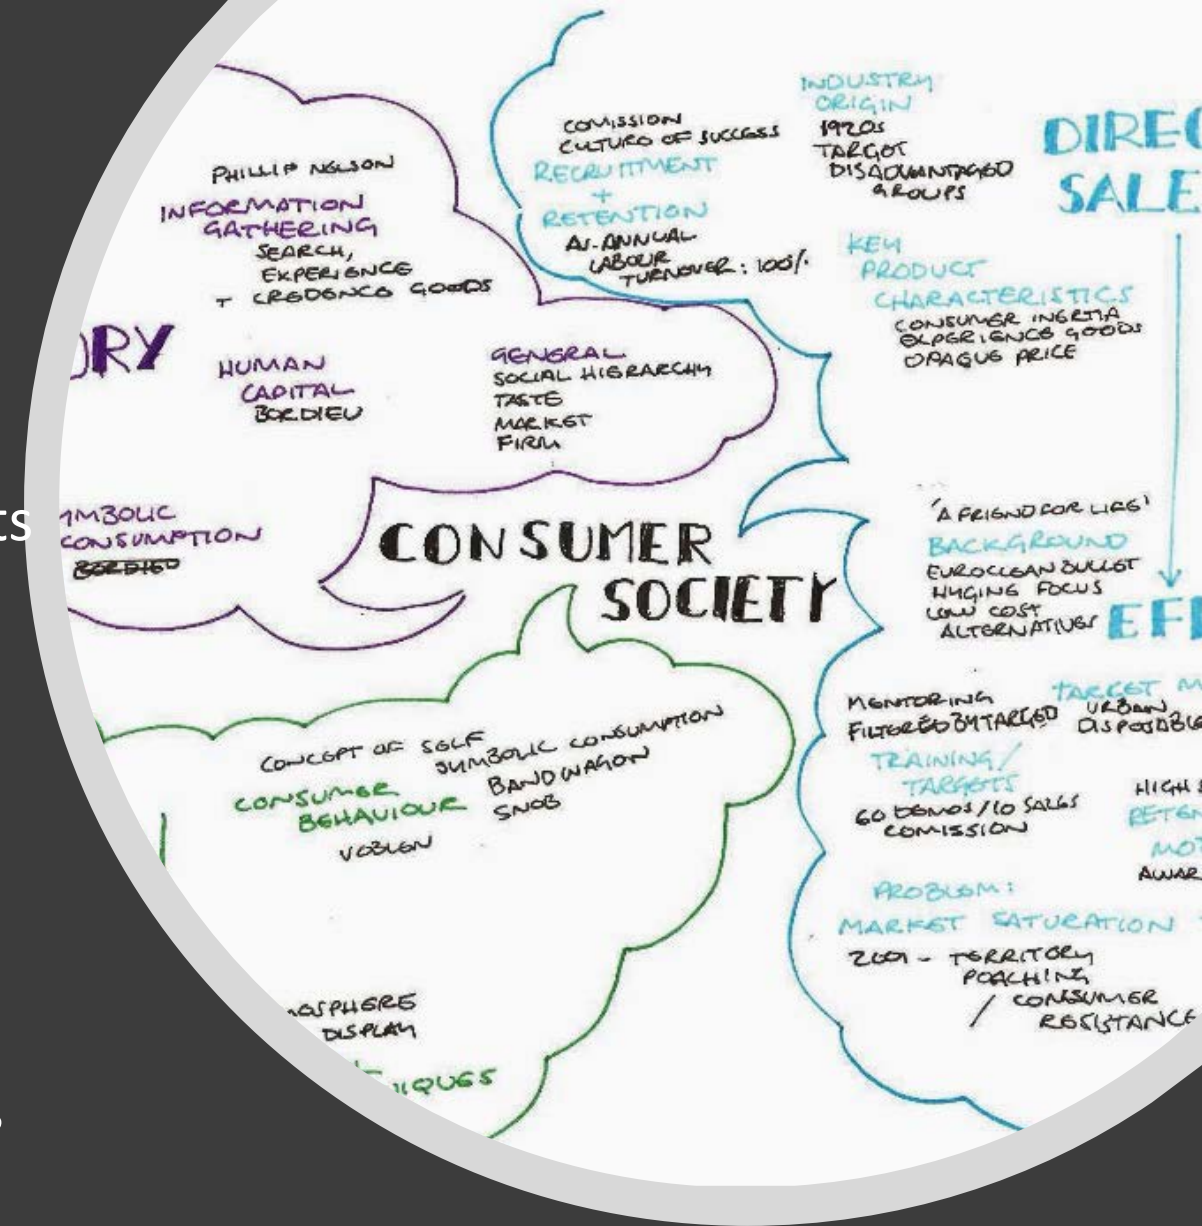 PHILLIP NELSON
INFORMATION
GATHERING
SEARCH,
EXPERIENCE
+ CREDENCE GOODS
ORY
HUMAN
CAPITAL
BORDIEU
GENERAL
SOCIAL HIERARCHY
TASTE
MARKET
FIRM
YMBOLIC
CONSUMPTION
BORDIEU
ts
CONSUMER
SOCIETY
COMISSION
CULTURE OF SUCCESS
RECRUITMENT
+
RETENTION
AV. ANNUAL
LABOUR
TURNOVER: 100%
INDUSTRY
ORIGIN
1920s
TARGET
DISADVANTAGED
GROUPS
DIREC
SALE
KEY
PRODUCT
CHARACTERISTICS
CONSUMER INERTIA
EXPERIENCE GOODS
OPAQUE PRICE
'A FRIEND FOR LIFE'
BACKGROUND
EUROCLEAN BULLET
HYGINE FOCUS
LOW COST
ALTERNATIVES
EFF
MENTORING
FILTERED BY TARGET
TRAINING/
TARGETS
60 DEMOS/10 SALES
COMISSION
TARGET M
URBAN
DISPOSABLE
HIGH S
RETEN
MOT
AWAR
PROBLEM:
MARKET SATURATION
2001 - TERRITORY
POACHING
/ CONSUMER
RESISTANCE
CONCEPT OF SELF
SYMBOLIC CONSUMPTION
CONSUMER
BEHAVIOUR
BANDWAGON
SNOB
VEBLEN
OSPHERE
DISPLAY
NIQUES